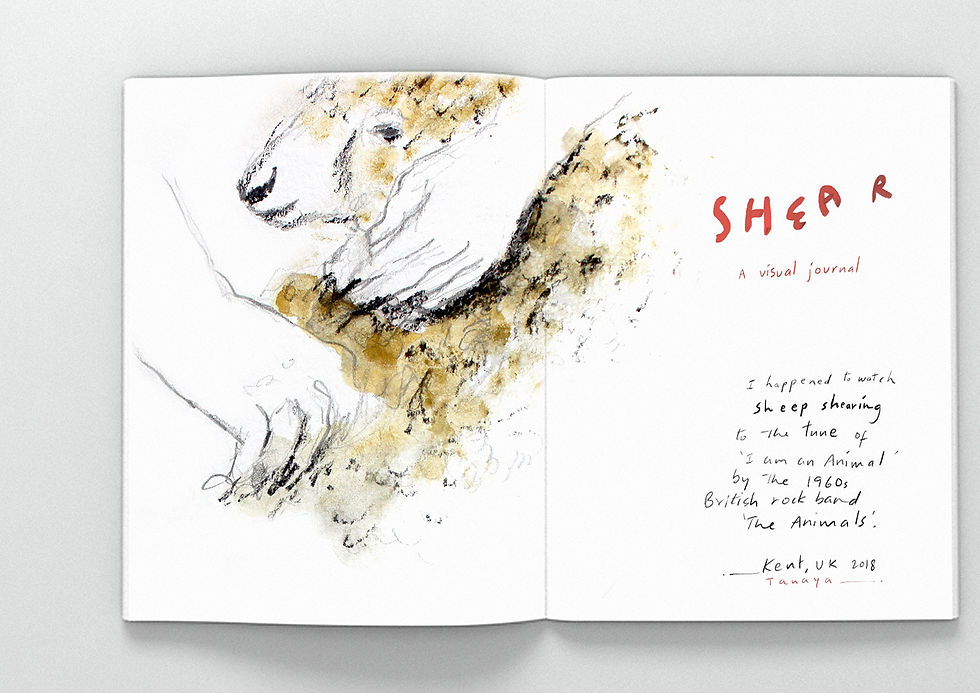 SHEAR
A visual journal
I happened to watch
sheep shearing
to the tune of
'I am an Animal'
by the 1960s
British rock band
'The Animals'.
Kent, UK 2018
Tanaya